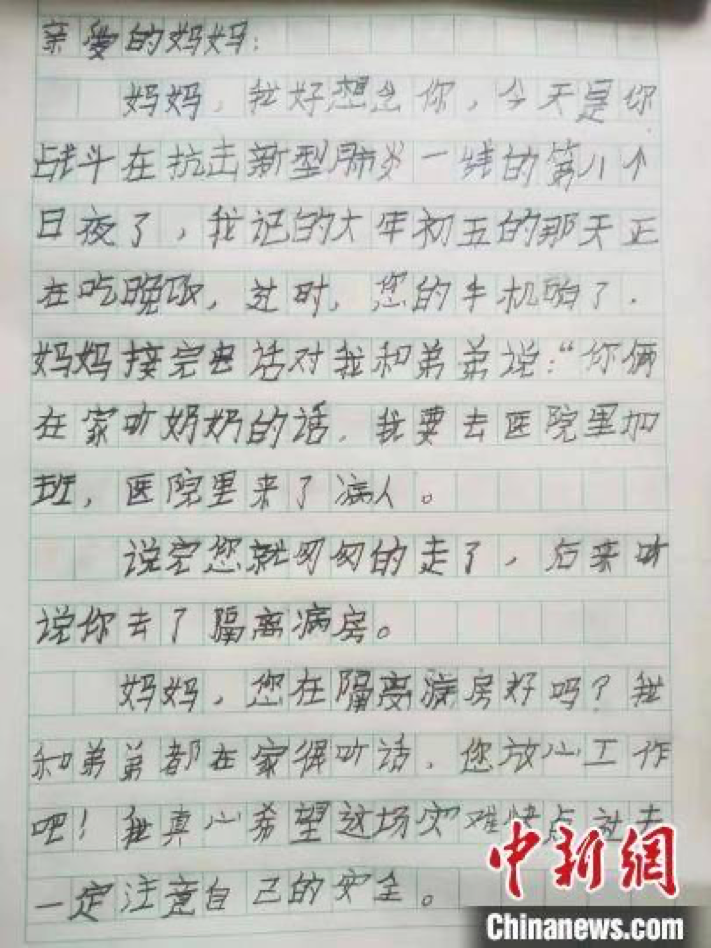 亲爱的妈妈：
妈妈，我好想念你，今天是你
战斗在抗击新型肺炎一线的第八个
日夜了，我记的大年初五的那天正
在吃晚饭，这时，您的手机响了．
妈妈接完电话对我和弟弟说：“你俩
在家听奶奶的话，我要去医院里加
班，医院里来了病人。
说完您就匆匆的走了，后来听
说你去了隔离病房。
妈妈，您在隔离病房好吗？我
和弟弟都在家很听话，您放心工作
吧！我真心希望这场灾难快点过去
一定注意自己的安全。
中新网
Chinanews.com